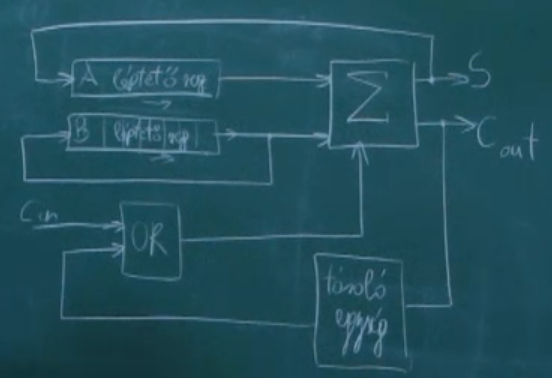 A léptető reg
Σ
S
B léptető reg
C out
C in
OR
tároló
egység